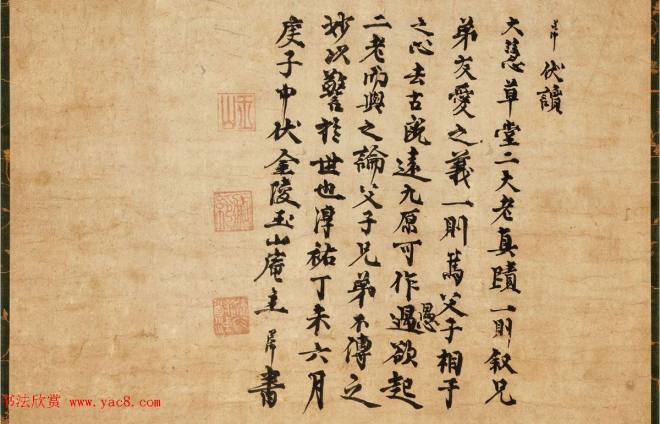 伏讀
大慧草堂二大老真蹟一則叙兄
弟友愛之義一則篤父子相予
之心去古既遠九原可作愚欲起
二老而與之論父子兄弟不傳之
妙以警於世也淳祐丁未六月
庚子中伏金陵玉山庵主書
玉山
书法欣赏 www.yac8.com